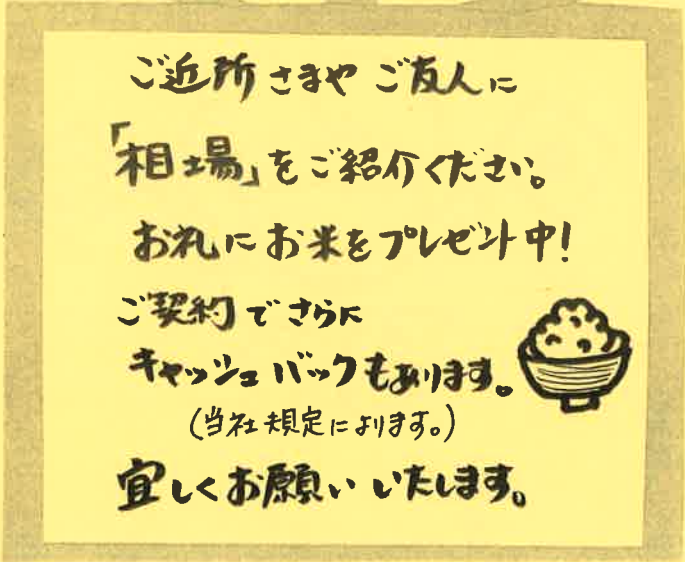 ご近所さまや ご友人に
「相場」をご紹介ください。
お礼にお米をプレゼント中!
ご契約でさらに
キャッシュバックもあります。
(当社規定によります。)
宜しくお願いいたします。